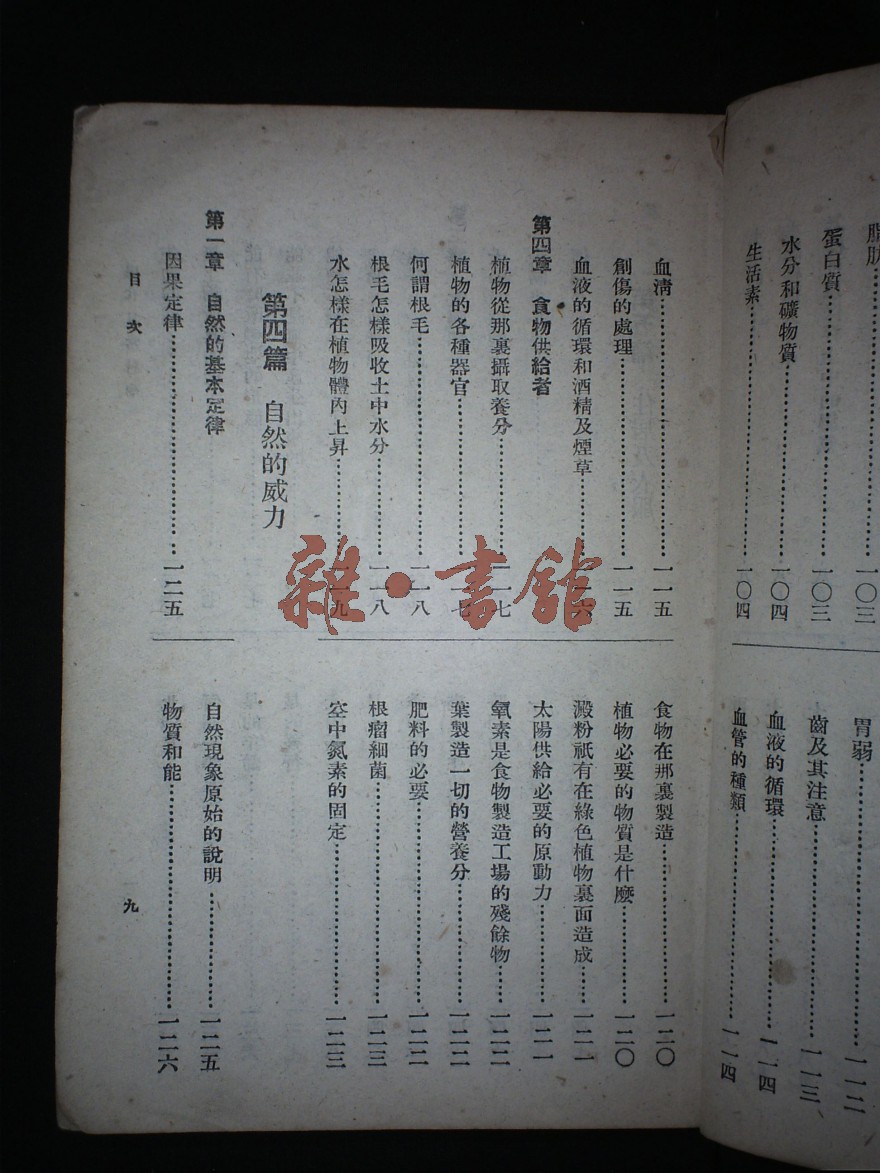 脂肪……一〇三
蛋白質……一〇三
水分和礦物質……一〇四
生活素……一〇四
胃弱……一一二
齒及其注意……一一三
血液的循環……一一四
血管的種類……一一四
血清……一一五
創傷的處理……一一五
血液的循環和酒精及煙草……一一六
第四章 食物供給者
植物從那裏攝取養分……一一七
植物的各種器官……一一七
何謂根毛……一一八
根毛怎樣吸收土中水分……一一八
水怎樣在植物體內上昇……一一九
第四篇 自然的威力
第一章 自然的基本定律
因果定律……一二五
食物在那裏製造……一二〇
植物必要的物質是什麼……一二〇
澱粉祇有在綠色植物裏面造成……一二一
太陽供給必要的原動力……一二一
氧素是食物製造工場的殘餘物……一二二
葉製造一切的營養分……一二二
肥料的必要……一二二
根瘤細菌……一二三
空中氮素的固定……一二三
自然現象原始的說明……一二五
物質和能……一二六
目次
九
雜·書館